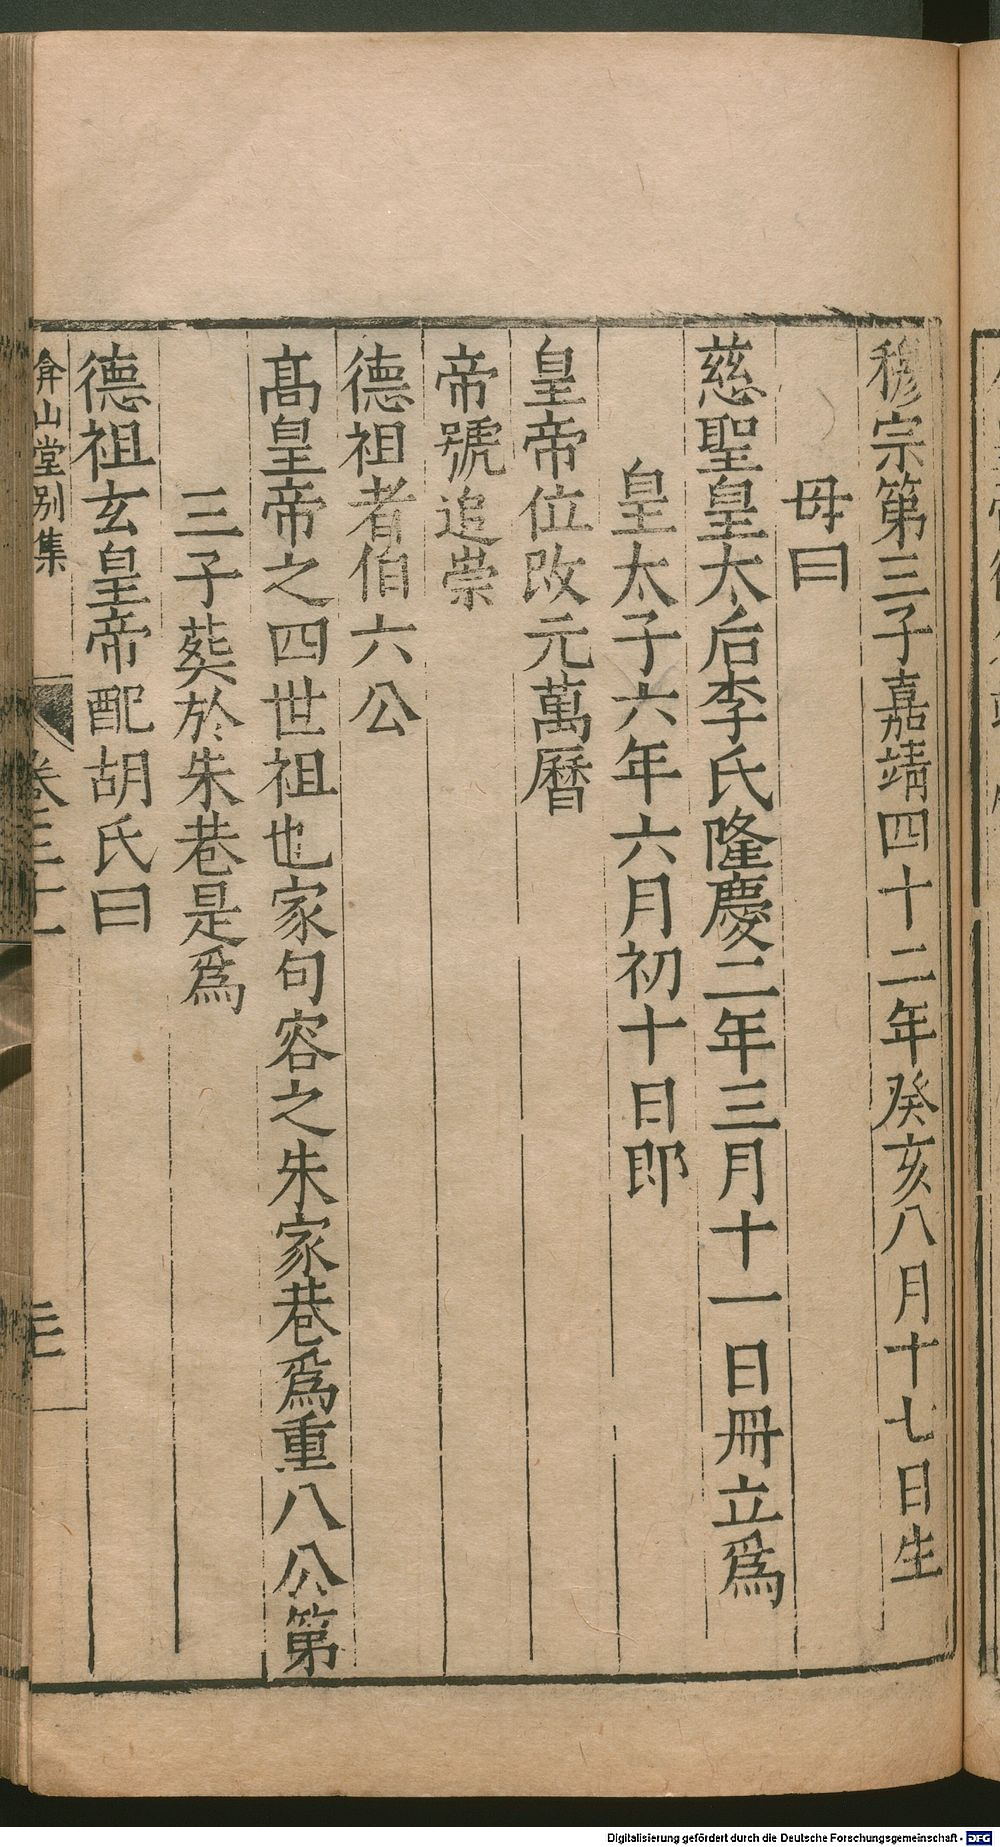 穆宗第三子嘉靖四十二年癸亥八月十七日生
母曰
慈聖皇太后李氏隆慶二年三月十一日冊立爲
皇太子六年六月初十日即
皇帝位改元萬曆
帝號追崇
德祖者伯六公
髙皇帝之四世祖也家句容之朱家巷爲重八公第
三子葬於朱巷是爲
德祖玄皇帝配胡氏曰
弇山堂别集
卷三十一
Digitalisierung gefördert durch die Deutsche Forschungsgemeinschaft - DFG